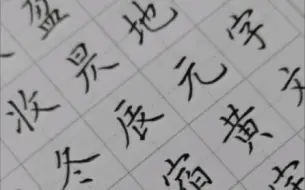 字文
地元黄宇
盈昃辰宿
收冬